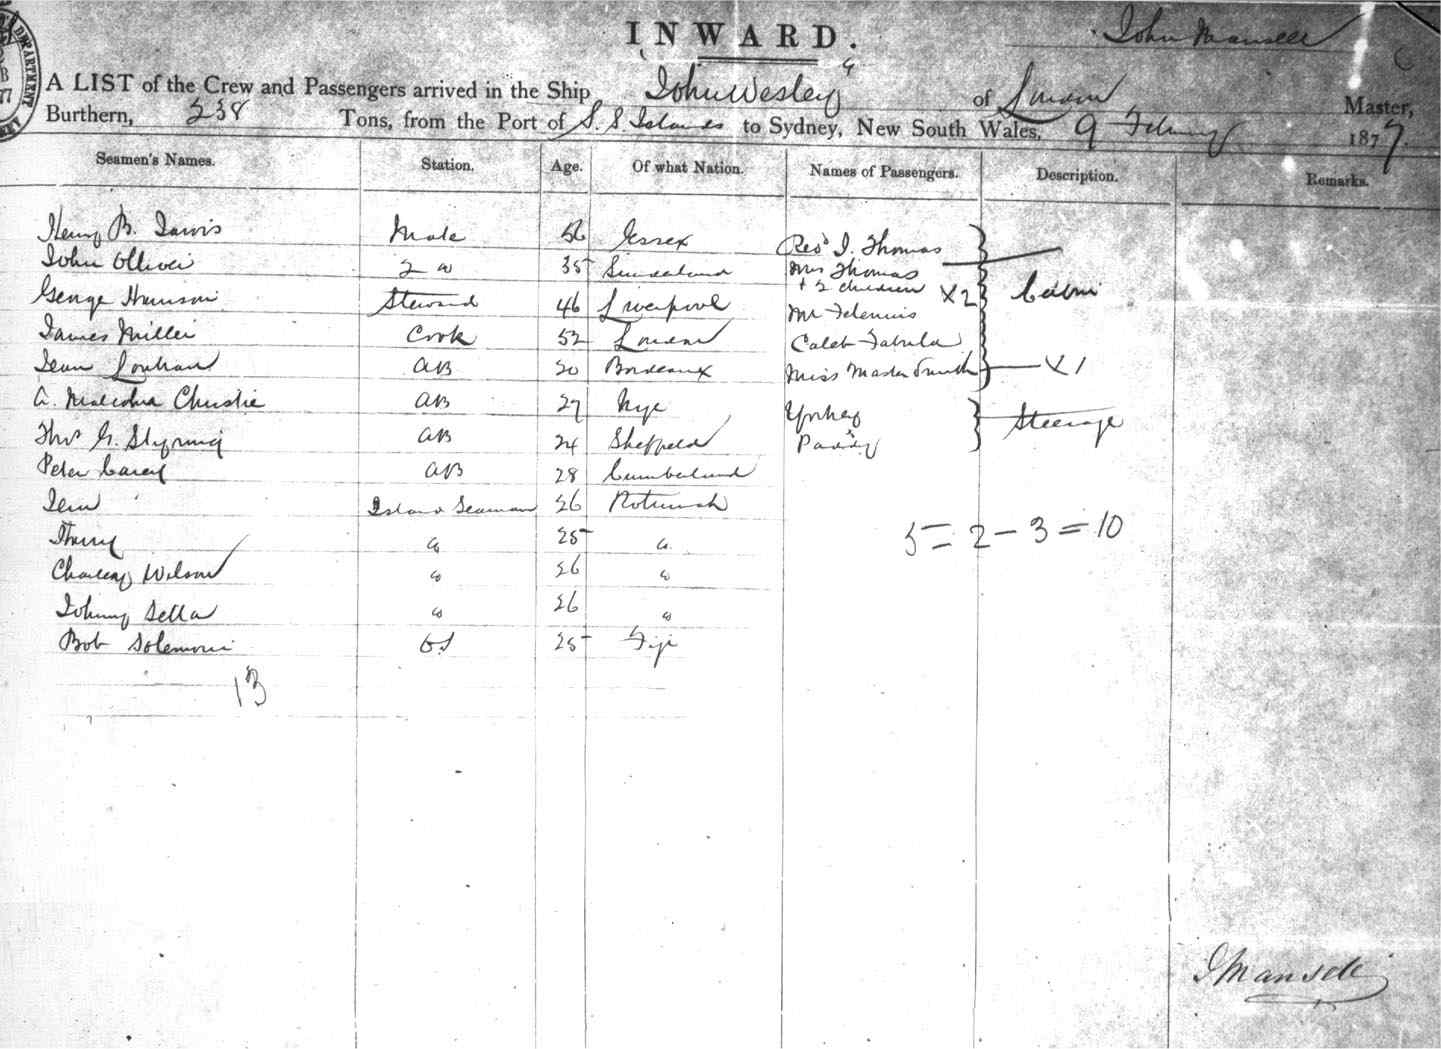 INWARD.
John Mansell
A LIST of the Crew and Passengers arrived in the Ship John Wesley of London Master,
Burthern, 238 Tons, from the Port of S. S. Islands to Sydney, New South Wales, 9 February 1877.
Seamen's Names. Station. Age. Of what Nation. Names of Passengers. Description. Remarks.
Henry B. Jarvis Mate 56 Essex Revd J. Thomas
John Olliver 2 do 35 Sunderland Mrs Thomas
+ 2 children X2 Cabin
George Steward 46 Liverpool Mr
James Miller Cook 52 London Caleb
Jean AB 20 Bordeaux Miss Master Smith X1
A. Malcolm Christie AB 27 Yorkey Steerage
Thos G. AB 24 Sheffield Paddy
Peter Carey AB 28 Cumberland
Island Seaman 26 Rotumah
Harry do 25 do
5 = 2 - 3 = 10
Charley Wilson do 26 do
Johnny Sella do 26 do
Bob OS 25 Fiji
13
J Mansell
DEPARTMENT